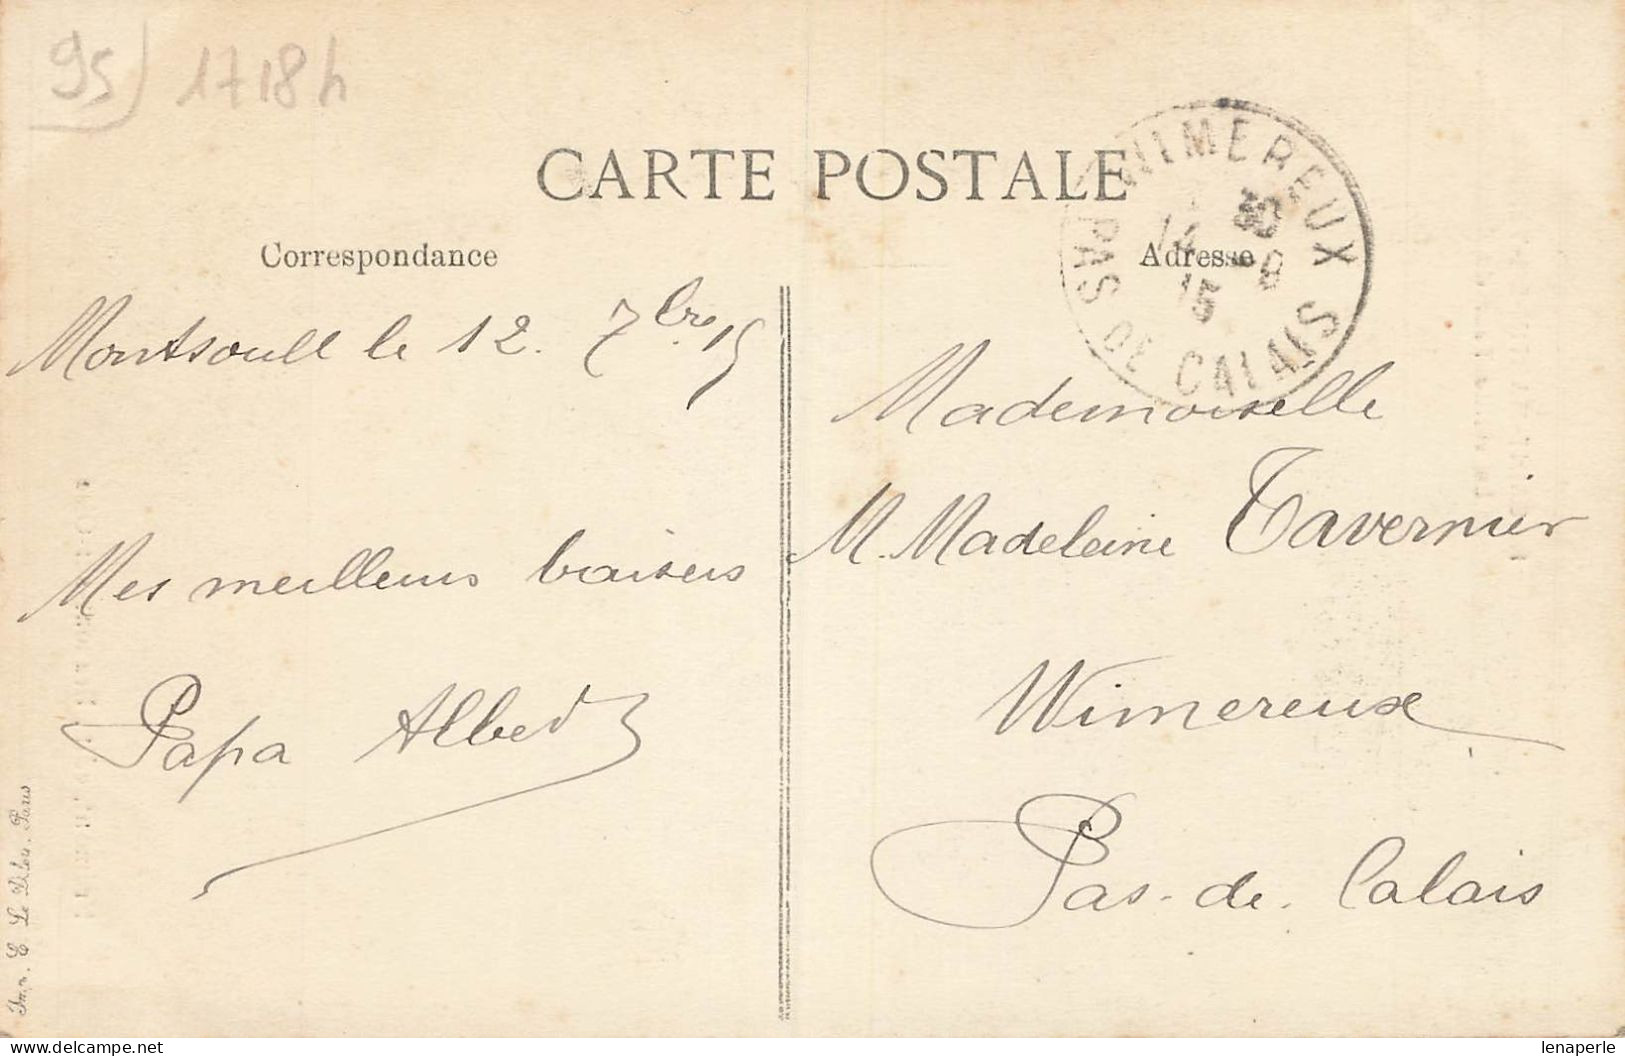 95) 1718h
CARTE POSTALE
Correspondance
Adresse
WIMEREUX
PAS DE CALAIS
Montsoult le 12. 7bre 15
Mes meilleurs baisers
Papa Albert
Mademoiselle
M. Madeleine Tavernier
Wimereux
Pas-de-Calais
Imp. E. Le Deley, Paris
lenaperle